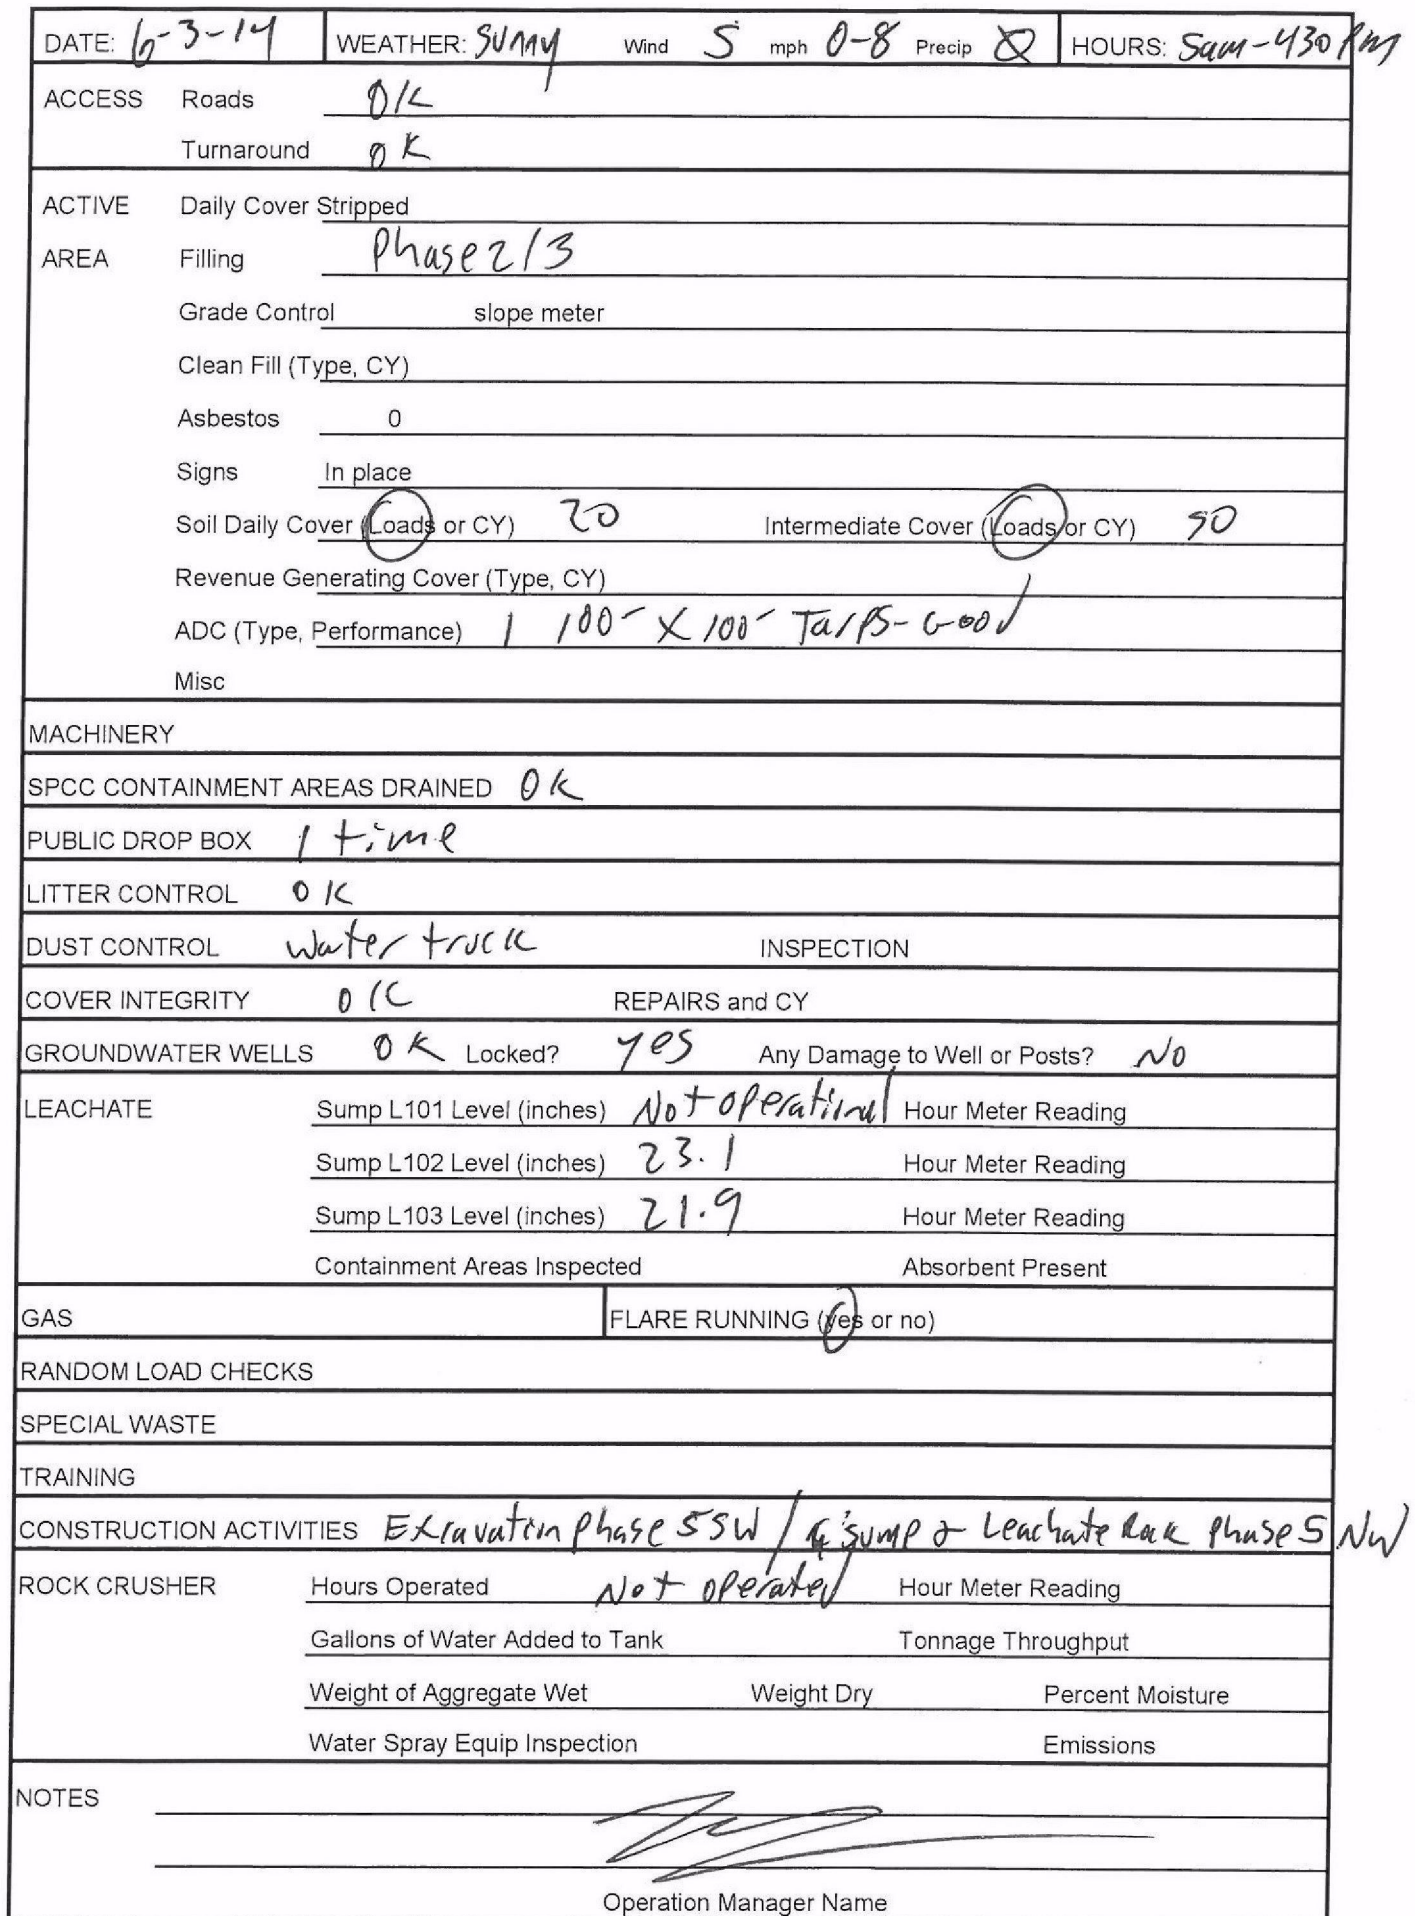 DATE: 6-3-14 WEATHER: Sunny Wind S mph 0-8 Precip 0 HOURS: 5am-430 PM
ACCESS Roads OK
Turnaround OK
ACTIVE Daily Cover Stripped
AREA Filling Phase 2/3
Grade Control slope meter
Clean Fill (Type, CY)
Asbestos 0
Signs In place
Soil Daily Cover (Loads or CY) 20 Intermediate Cover (Loads or CY) 50
Revenue Generating Cover (Type, CY)
ADC (Type, Performance) 1 100' X 100' Tarps-Good
Misc
MACHINERY
SPCC CONTAINMENT AREAS DRAINED OK
PUBLIC DROP BOX 1 time
LITTER CONTROL OK
DUST CONTROL Water truck INSPECTION
COVER INTEGRITY OK REPAIRS and CY
GROUNDWATER WELLS OK Locked? Yes Any Damage to Well or Posts? No
LEACHATE Sump L101 Level (inches) Not operational Hour Meter Reading
Sump L102 Level (inches) 23.1 Hour Meter Reading
Sump L103 Level (inches) 21.9 Hour Meter Reading
Containment Areas Inspected Absorbent Present
GAS FLARE RUNNING (yes or no)
RANDOM LOAD CHECKS
SPECIAL WASTE
TRAINING
CONSTRUCTION ACTIVITIES Excavation phase 5 SW / sump & Leachate Rock Phase 5 NW
ROCK CRUSHER Hours Operated Not operated Hour Meter Reading
Gallons of Water Added to Tank Tonnage Throughput
Weight of Aggregate Wet Weight Dry Percent Moisture
Water Spray Equip Inspection Emissions
NOTES
Operation Manager Name